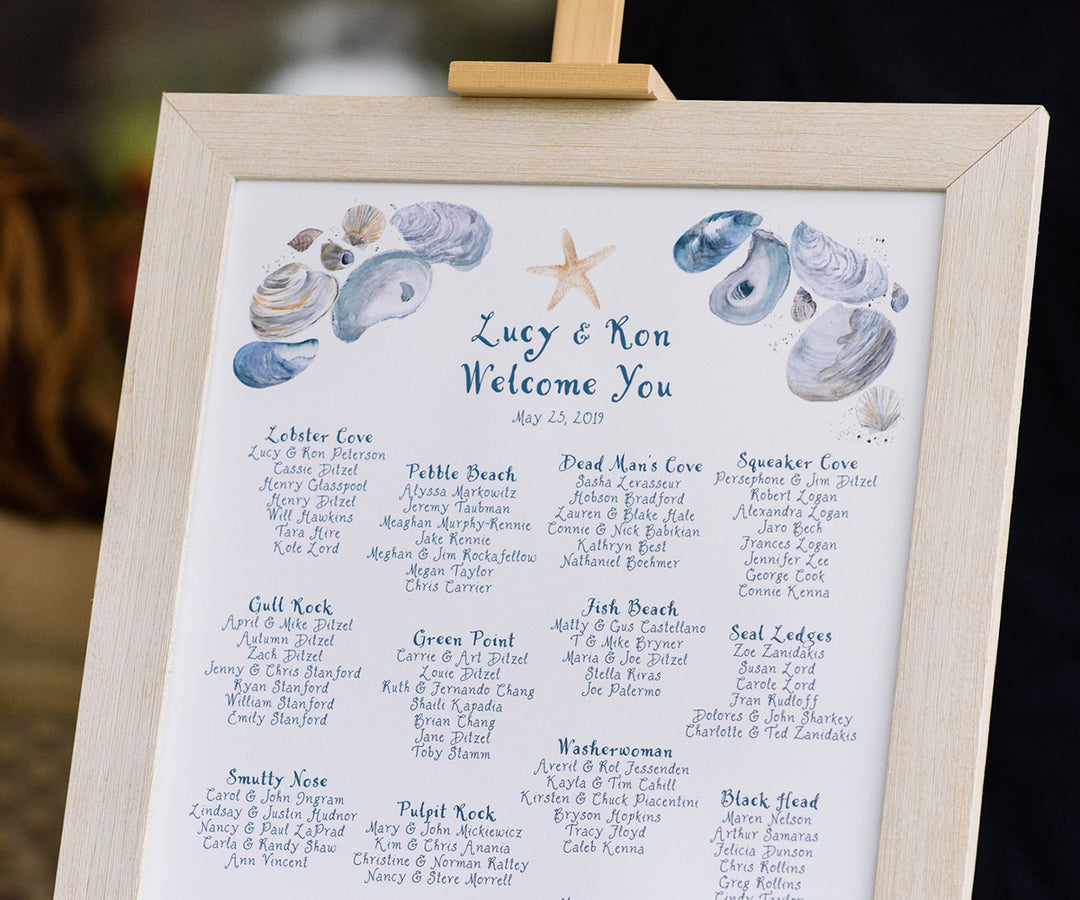 Lucy & Ron
Welcome You
May 25, 2019
Lobster Cove
Lucy & Ron Peterson
Cassie Ditzel
Henry Glasspool
Henry Ditzel
Will Hawkins
Tara Hire
Kole Lord
Pebble Beach
Alyssa Markowitz
Jeremy Taubman
Meaghan Murphy-Rennie
Jake Rennie
Meghan & Jim Rockafellow
Megan Taylor
Chris Carrier
Dead Man's Cove
Sasha Levasseur
Hobson Bradford
Lauren & Blake Hale
Connie & Nick Babikian
Kathryn Best
Nathaniel Boehmer
Squeaker Cove
Persephone & Jim Ditzel
Robert Logan
Alexandra Logan
Jaro Bech
Frances Logan
Jennifer Lee
George Cook
Connie Kenna
Gull Rock
April & Mike Ditzel
Autumn Ditzel
Zach Ditzel
Jenny & Chris Stanford
Ryan Stanford
William Stanford
Emily Stanford
Green Point
Carrie & Art Ditzel
Louie Ditzel
Ruth & Fernando Chang
Shaili Kapadia
Brian Chang
Jane Ditzel
Toby Stamm
Fish Beach
Matty & Gus Castellano
T & Mike Bryner
Maria & Joe Ditzel
Stella Rivas
Joe Palermo
Seal Ledges
Zoe Zanidakis
Susan Lord
Carole Lord
Fran Rudloff
Dolores & John Sharkey
Charlotte & Ted Zanidakis
Smutty Nose
Carol & John Ingram
Lindsay & Justin Hudnor
Nancy & Paul LaPrad
Carla & Randy Shaw
Ann Vincent
Pulpit Rock
Mary & John Mickiewicz
Kim & Chris Anania
Christine & Norman Rattey
Nancy & Steve Morrell
Washerwoman
Averil & Rol Fessenden
Kayla & Tim Cahill
Kirsten & Chuck Piacentini
Bryson Hopkins
Tracy Floyd
Caleb Kenna
Black Head
Maren Nelson
Arthur Samaras
Felicia Dunson
Chris Rollins
Greg Rollins
Cindy Taylor